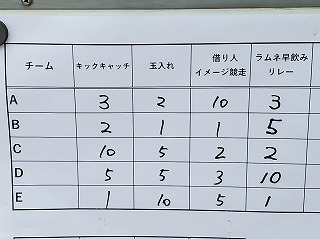 チーム キックキャッチ 玉入れ 借り人 ラムネ早飲み
イメージ競走 リレー
A 3 2 10 3
B 2 1 1 5
C 10 5 2 2
D 5 5 3 10
E 1 10 5 1